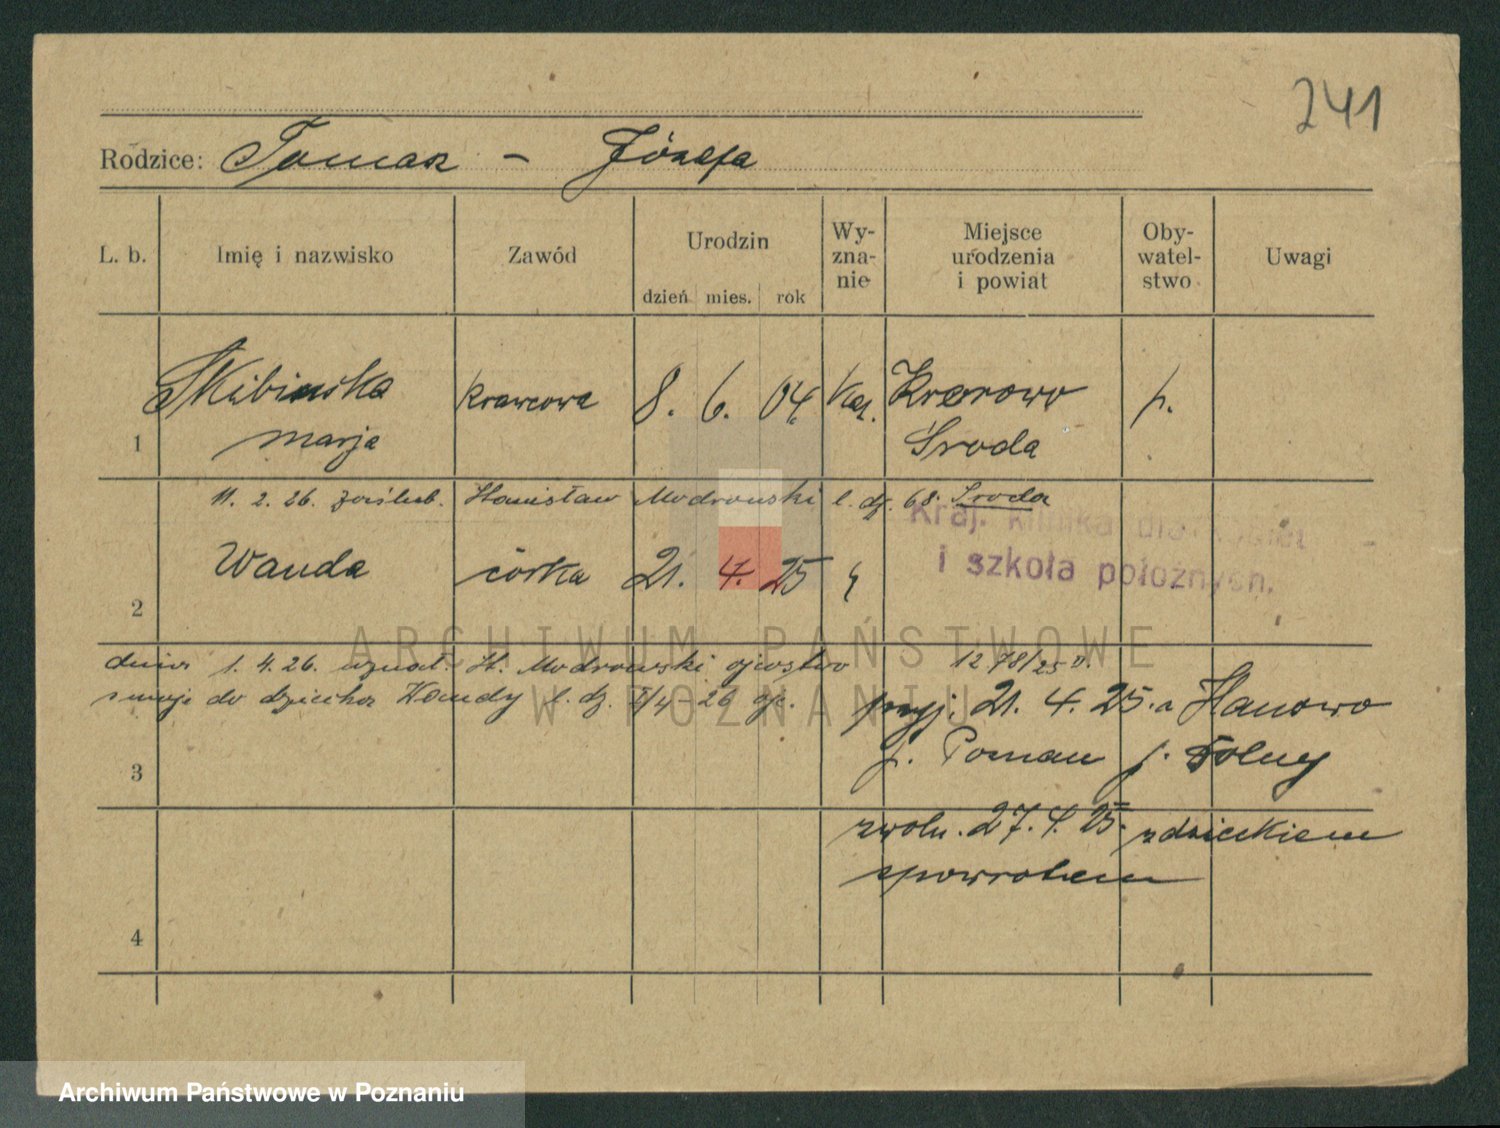 241
Rodzice: Tomasz – Józefa
L. b. Imię i nazwisko Zawód Urodzin dzień mies. rok Wy-zna-nie Miejsce urodzenia i powiat Oby-watel-stwo Uwagi
Skibinska krawcowa 8. 6. 04. kat. p.
1 Marja Środa
11. 2. 26. zaślub. Stanisław Modrowski l. dz. 68. Środa
Kraj. klinika dla kobiet
i szkoła położnych.
Wanda córka 21. 4. 25
2
dnia 1. 4. 26. uznał St. Modrowski ojcostwo
swoje do dziecka Wandy l. dz.
1278/25
przyj. 21. 4. 25. z
p. Poznan
3
zwoln. 27. 4. 25. z dzieckiem
spowrotem
4
ARCHIWUM PAŃSTWOWE
W POZNANIU
Archiwum Państwowe w Poznaniu